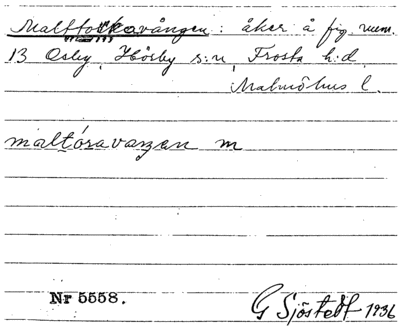 Malttorkavången: åker å fig. num.
13 Osby, Hörby s:n, Frosta h:d.
Malmöhus l.
maltóravaŋen m
Nr 5558.
G Sjöstedt 1936